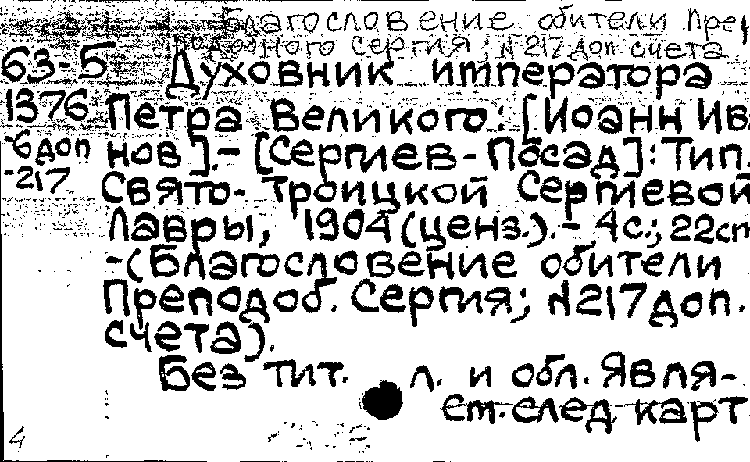 Благословение обители Пре
подобного Сергия; N 217 доп счета
63-5 Духовник императора
1376 Петра Великого: [Иоанн Ив
-6 доп нов].- [Сергиев-Посад]: Тип.
-217 Свято-Троицкой Сергиевой
Лавры, 1904 (ценз.).- 4с.; 22см
-(Благословение обители
Преподоб. Сергия; N217 доп.
счета).
Без тит. л. и обл. Явля-
ет.след карт
4